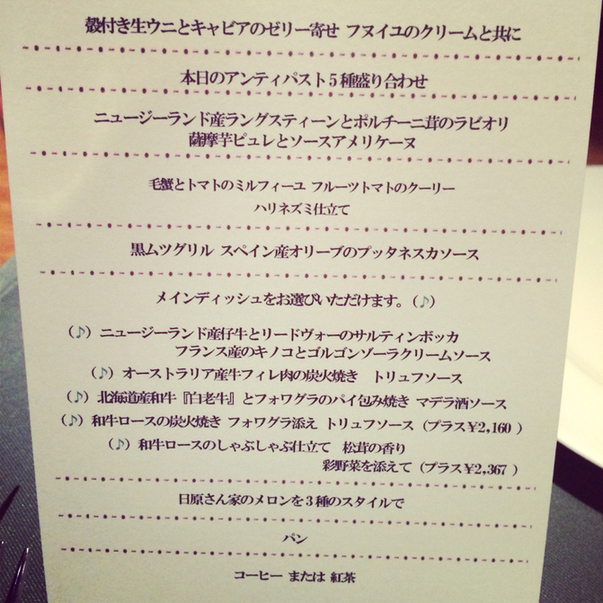 殻付き生ウニとキャビアのゼリー寄せ フヌイユのクリームと共に
本日のアンティパスト5種盛り合わせ
ニュージーランド産ラングスティーンとポルチーニ茸のラビオリ
薩摩芋ピュレとソースアメリケーヌ
毛蟹とトマトのミルフィーユ フルーツトマトのクーリー
ハリネズミ仕立て
黒ムツグリル スペイン産オリーブのプッタネスカソース
メインディッシュをお選びいただけます。(♪)
(♪) ニュージーランド産仔牛とリードヴォーのサルティンボッカ
フランス産のキノコとゴルゴンゾーラクリームソース
(♪) オーストラリア産牛フィレ肉の炭火焼き トリュフソース
(♪) 北海道産和牛『白老牛』とフォワグラのパイ包み焼き マデラ酒ソース
(♪) 和牛ロースの炭火焼き フォワグラ添え トリュフソース (プラス¥2,160 )
(♪) 和牛ロースのしゃぶしゃぶ仕立て 松茸の香り
彩野菜を添えて (プラス¥2,367 )
日原さん家のメロンを3種のスタイルで
パン
コーヒー または 紅茶